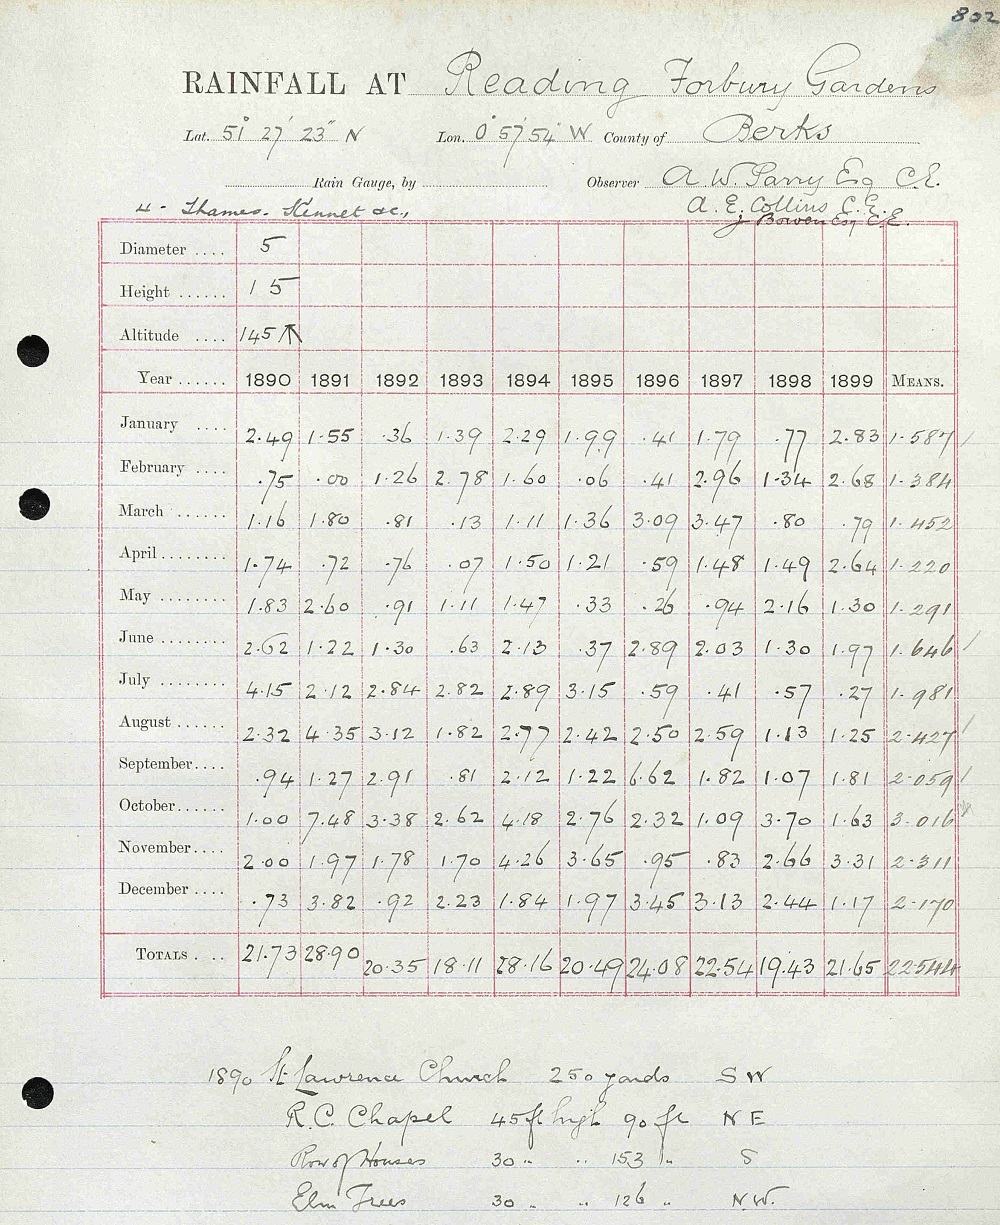 802
RAINFALL AT Reading Forbury Gardens
Lat. 51° 27' 23" N Lon. 0° 57' 54" W County of Berks
Rain Gauge, by Observer A W. Parry Esq C.E.
4 - Thames. Kennet &c., A. E. Collins C.E.
J. Bowen Esq C.E.
Diameter .... 5
Height ...... 1 5
Altitude .... 145
Year ...... 1890 1891 1892 1893 1894 1895 1896 1897 1898 1899 MEANS.
January .... 2.49 1.55 .36 1.39 2.29 1.99 .41 1.79 .77 2.83 1.587
February .... .75 .00 1.26 2.78 1.60 .06 .41 2.96 1.34 2.68 1.384
March ...... 1.16 1.80 .81 .13 1.11 1.36 3.09 3.47 .80 .79 1.452
April ........ 1.74 .72 .76 .07 1.50 1.21 .59 1.48 1.49 2.64 1.220
May ........ 1.83 2.60 .91 1.11 1.47 .33 .26 .94 2.16 1.30 1.291
June ........ 2.62 1.22 1.30 .63 2.13 .37 2.89 2.03 1.30 1.97 1.646
July ........ 4.15 2.12 2.84 2.82 2.89 3.15 .59 .41 .57 .27 1.981
August ...... 2.32 4.35 3.12 1.82 2.77 2.42 2.50 2.59 1.13 1.25 2.427
September.... .94 1.27 2.91 .81 2.12 1.22 6.62 1.82 1.07 1.81 2.059
October...... 1.00 7.48 3.38 2.62 4.18 2.76 2.32 1.09 3.70 1.63 3.016
November.... 2.00 1.97 1.78 1.70 4.26 3.65 .95 .83 2.66 3.31 2.311
December .... .73 3.82 .92 2.23 1.84 1.97 3.45 3.13 2.44 1.17 2.170
TOTALS .... 21.73 28.90 20.35 18.11 28.16 20.49 24.08 22.54 19.43 21.65 22.544
1890 St Lawrence Church 250 yards S W
R.C. Chapel 45 ft high 90 ft N E
Row of Houses 30 " " 153 " S
Elm Trees 30 " " 126 " N.W.